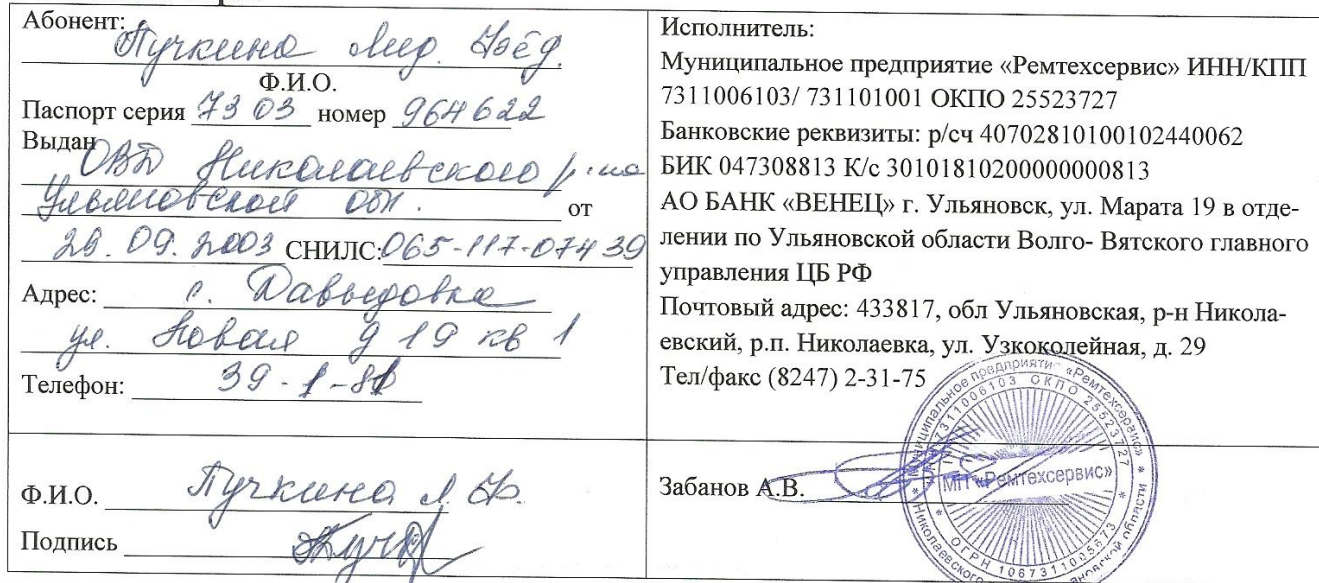 Абонент:
Пучкина Лид. Фёд.
Ф.И.О.
Паспорт серия 73 03 номер 964622
Выдан
ОВД Николаевского р-на
Ульяновской обл. от
29. 09. 2003 СНИЛС: 065-117-074 39
Адрес: с. Давыдовка
ул. Новая д 19 кв 1
Телефон: 39-1-81
Ф.И.О. Пучкина Л. Ф.
Подпись
Исполнитель:
Муниципальное предприятие «Ремтехсервис» ИНН/КПП
7311006103/ 731101001 ОКПО 25523727
Банковские реквизиты: р/сч 40702810100102440062
БИК 047308813 К/с 30101810200000000813
АО БАНК «ВЕНЕЦ» г. Ульяновск, ул. Марата 19 в отде-
лении по Ульяновской области Волго- Вятского главного
управления ЦБ РФ
Почтовый адрес: 433817, обл Ульяновская, р-н Никола-
евский, р.п. Николаевка, ул. Узкоколейная, д. 29
Тел/факс (8247) 2-31-75
Забанов А.В.
МП «Ремтехсервис»